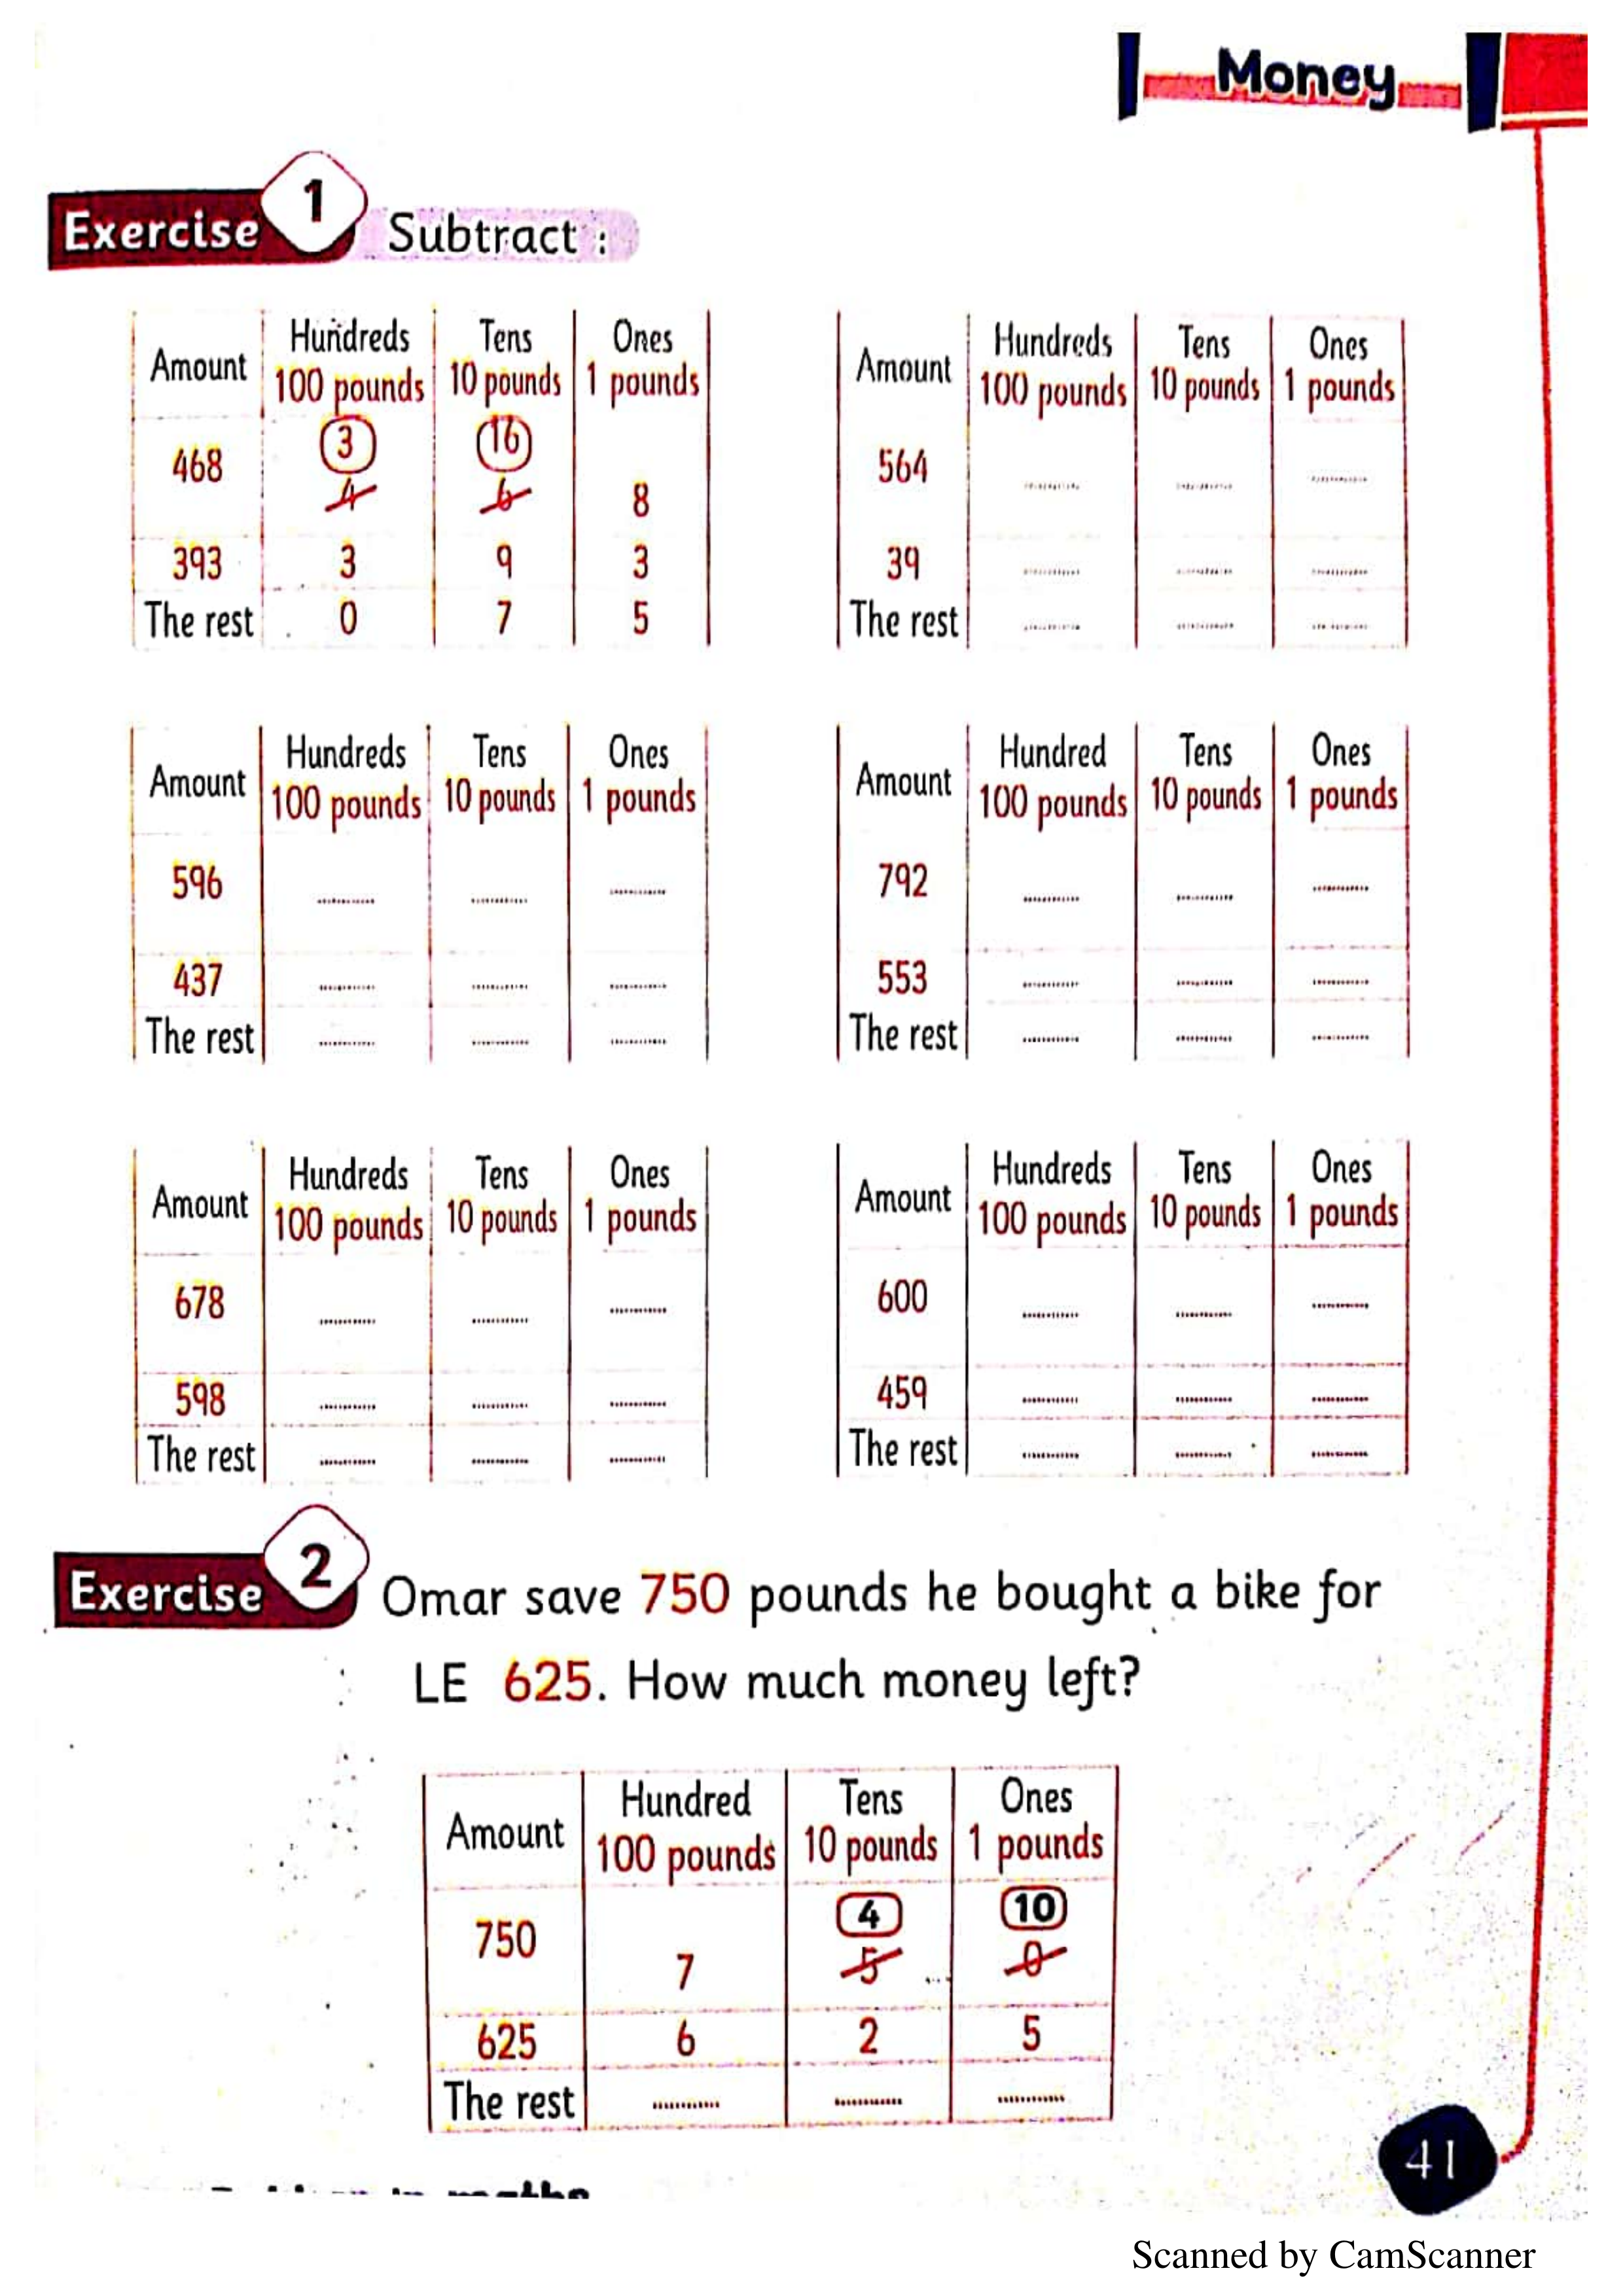 Money
Exercise 1 Subtract :
Amount Hundreds 100 pounds Tens 10 pounds Ones 1 pounds
468 3 4 16 6 8
393 3 9 3
The rest 0 7 5
Amount Hundreds 100 pounds Tens 10 pounds Ones 1 pounds
564 ............ ............ ............
39 ............ ............ ............
The rest ............ ............ ............
Amount Hundreds 100 pounds Tens 10 pounds Ones 1 pounds
596 ............ ............ ............
437 ............ ............ ............
The rest ............ ............ ............
Amount Hundred 100 pounds Tens 10 pounds Ones 1 pounds
792 ............ ............ ............
553 ............ ............ ............
The rest ............ ............ ............
Amount Hundreds 100 pounds Tens 10 pounds Ones 1 pounds
678 ............ ............ ............
598 ............ ............ ............
The rest ............ ............ ............
Amount Hundreds 100 pounds Tens 10 pounds Ones 1 pounds
600 ............ ............ ............
459 ............ ............ ............
The rest ............ ............ ............
Exercise 2 Omar save 750 pounds he bought a bike for
LE 625. How much money left?
Amount Hundred 100 pounds Tens 10 pounds Ones 1 pounds
750 7 4 5 10 0
625 6 2 5
The rest ............ ............ ............
41
Scanned by CamScanner